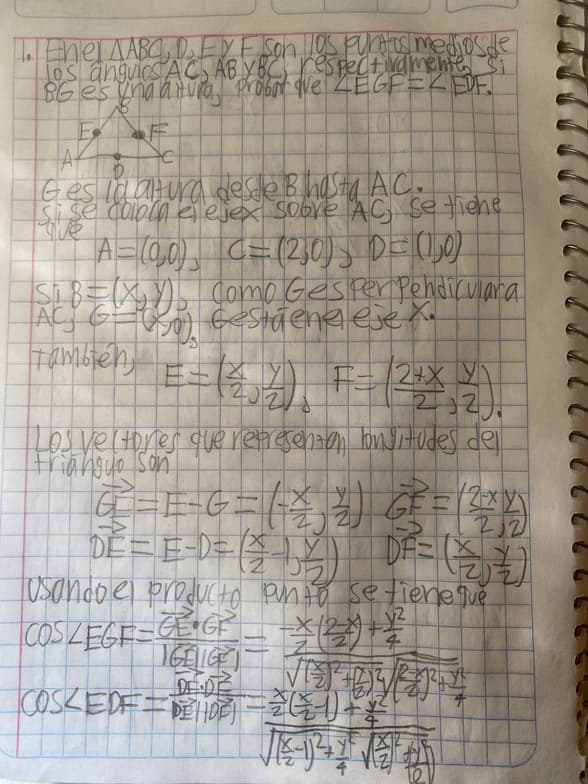 1. En el △ABC, D, E y F son los puntos medios de
los ángulos AC, AB y BC, respectivamente, si
BG es una altura, probar que ∠EGF=∠EDF.
B
E F
A D C
G es la altura desde B hasta AC.
Si se coloca el eje x sobre AC, se tiene
que
A=(0,0), C=(2,0), D=(1,0)
Si B=(x,y), como G es perpendicular a
AC, G=(x,0), G está en el eje x.
También,
E=(x/2, y/2), F=((2+x)/2, y/2).
Los vectores que representan longitudes del
triángulo son
GE=E-G=(-x/2, y/2) GF=((2-x)/2, y/2)
DE=E-D=(x/2-1, y/2) DF=(x/2, y/2)
Usando el producto punto se tiene que
cos∠EGF=GE·GF/|GE||GF|=(-x/2((2-x)/2)+y²/4)/(√((x/2)²+(y/2)²)√(((2-x)/2)²+y²/4))
cos∠EDF=DE·DF/|DE||DF|=(x/2(x/2-1)+y²/4)/(√((x/2-1)²+y²/4)√((x/2)²+(y/2)²))